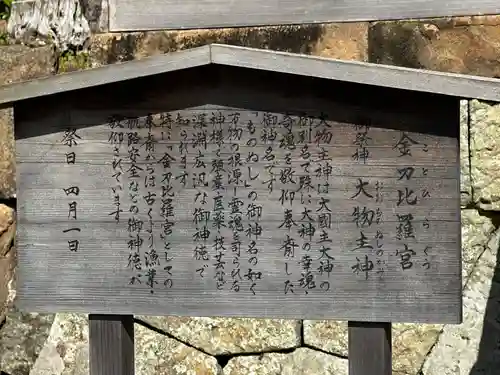 金刀比羅宮
ことひらぐう
御祭神 大物主神
おおものぬしのかみ
大物主神は大國主大神の
御別名で殊に大神の幸魂・
奇魂を敬仰奉斎した
御神名です。
「ものぬし」の御神名の如く
万物の根源・霊魂を司られる
神様で農業・医薬・技芸など
深淵広汎な御神徳で
知られます。
特に「金刀比羅宮」としての
奉斎からは古くより漁業・
航路安全などの御神徳が
敬仰されています。
祭日 四月一日